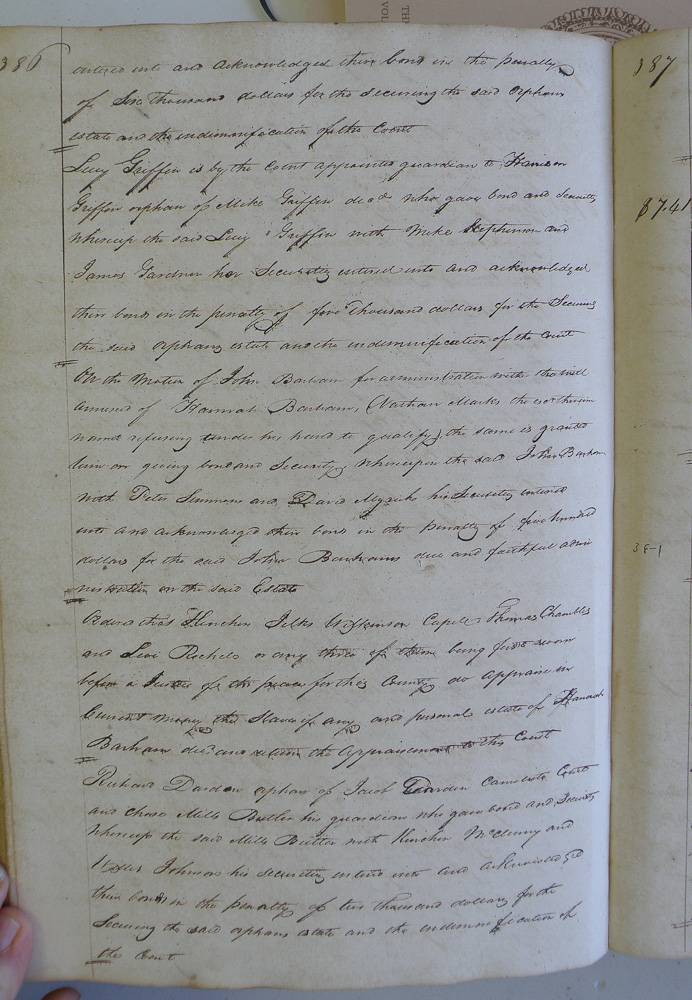 386
entered into and acknowledged their bond in the penalty
of Six thousand dollars for the securing the said orphans
estate and the indemnification of the Court
Lucy Griffin is by the Court appointed guardian to Harrison
Griffin orphan of Mike Griffin decd who gave bond and security
whereup the said Lucy Griffin with Mike Stephenson and
James Gardner her Securities entered into and acknowledged
their bond in the penalty of five Thousand dollars for the Securing
the said orphans estate and the indemnification of the Court
On the motion of John Barham for administration with the will
annexed of Hannah Barham, (Nathan the exor therein
named refusing under his hand to qualify) the same is granted
him on giving bond and Security, whereupon the said John Barham
with Peter Simmons and David his Securities entered
into and acknowledged their bond in the Penalty of five hundred
dollars for the said John Barhams due and faithful admi
nistration on the said Estate
Ordered that Hinchen Jelks Wilkinson Capell Thomas Chambliss
and Levi Rochelo or any three of them being first sworn
before a Justice of the peace for this County do appraise in
Current money the Slaves if any and personal estate of Hannah
Barham decd and return the Appraisement to this Court
Richard Darden orphan of Jacob Darden Came into Court
and chose Mills Butler his guardian who gave bond and Security
Whereup the said Mills Butler with Kinchen McClenny and
Johnson his securities entered into and acknowledged
their bonds in the penalty of ten thousand dollars for the
Securing the said orphans estate and the indemnification of
the Court
387
$7.41
38-1